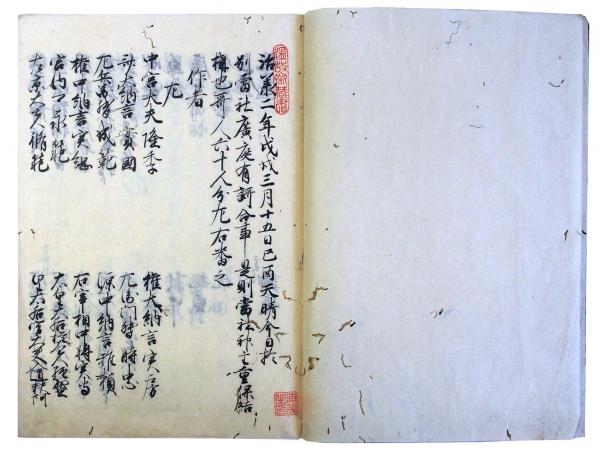 治承二年戊戌三月十五日己丙天晴今日於
別雷社廣庭有謌合事是則當社神主重保結
構也哥人六十人分左右番之
作者
左
中宮大夫隆季 権大納言実房
大納言實國 左衛門督時忠
左兵衛督成範 源中納言雅頼
権中納言実綱 右宰相中将実守
宮内卿永範
左京大夫脩範